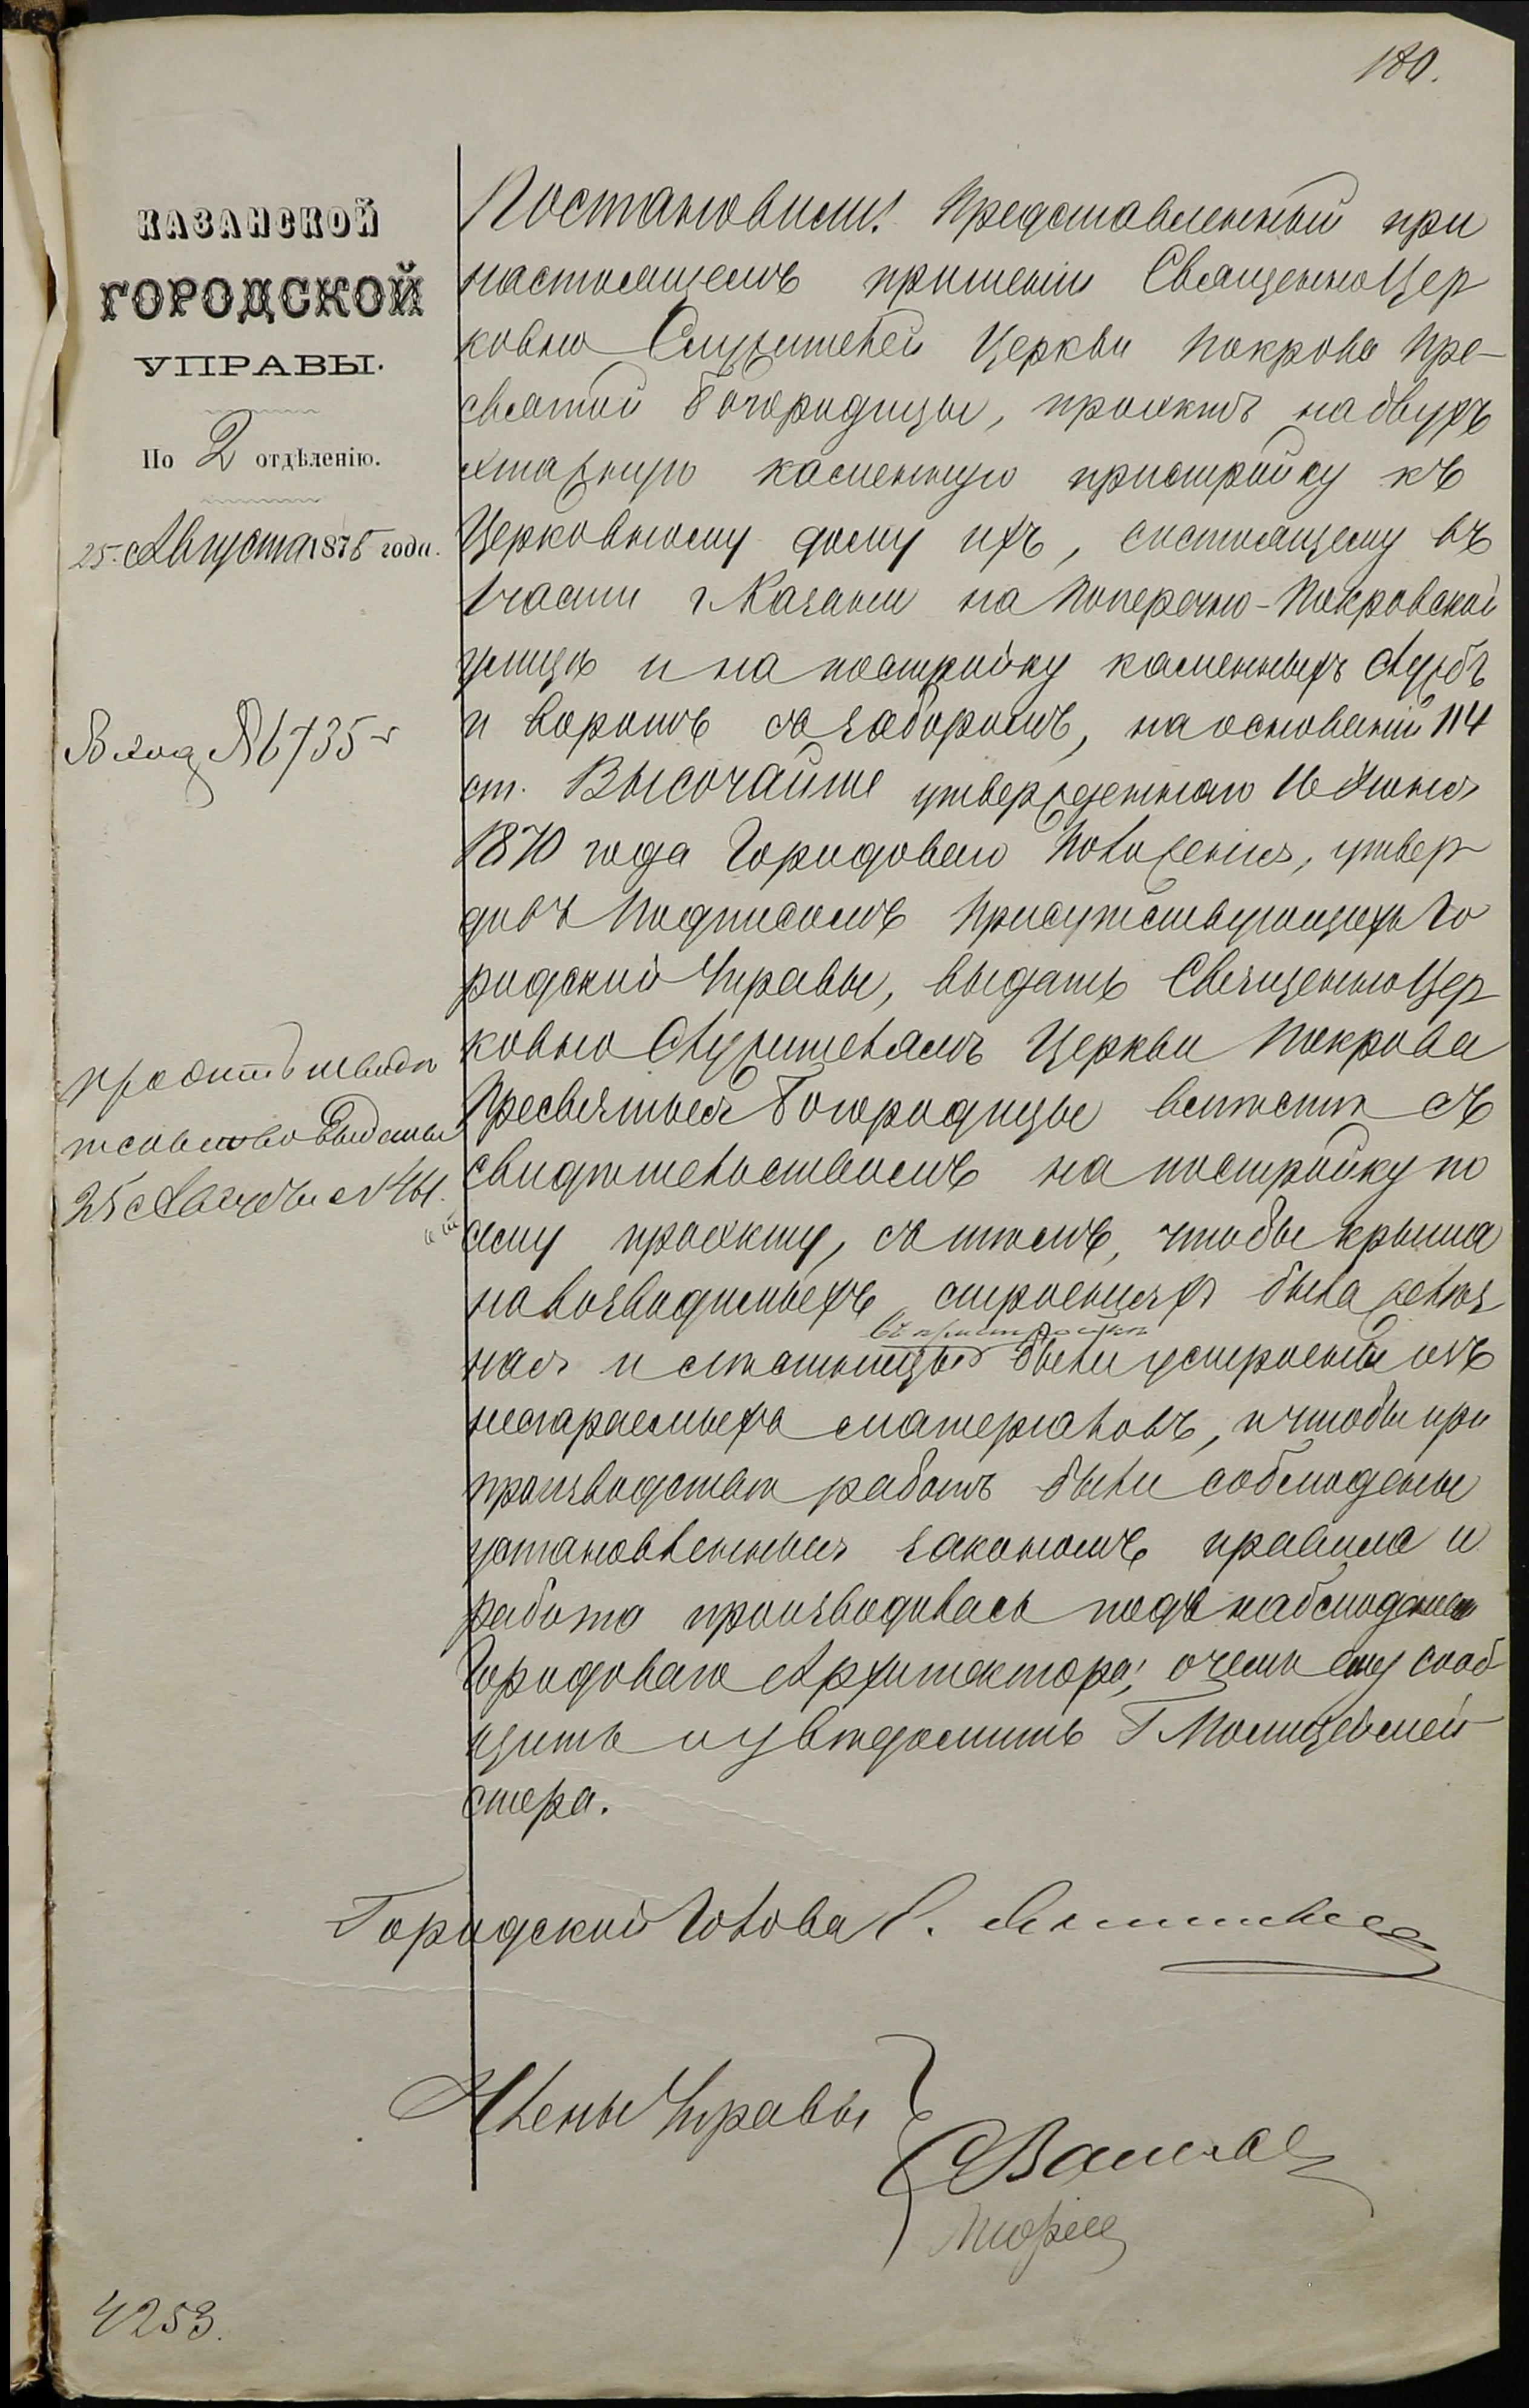 180.
КАЗАНСКОЙ
ГОРОДСКОЙ
УПРАВЫ.
По 2 отдѣленію.
25 Августа 1878 года.
Вход № 6735
проэктъ и свидѣ
тельство выданы
25 Августа № 461.
Постановили: Представленный при
настоящемъ прошеніи Священно Цер
ковно Служителей Церкви Покрова Пре-
святой Богородицы, проэктъ на двухъ
этажную каменную пристройку къ
Церковному дому ихъ, состоящему въ
1 части г. Казани на Поперечно-Покровской
улицѣ и на постройку каменныхъ службъ
и воротъ съ заборомъ, на основаніи 114
ст. Высочайше утвержденного 16 Июня
1870 года Городоваго Положенія, утвер
дивъ подписомъ Присутствующихъ Го
родской Управы, выдать Священно Цер
ковно Служителямъ Церкви Покрова
Пресвятыя Богородицы вместѣ съ
свидѣтельствомъ на постройку по
сему проэкту, съ тѣмъ, чтобы крыша
на возводимыхъ строеніяхъ была желѣз
ная и лѣстницы въ пристройкѣ были устроены изъ
несгараемыхъ матеріаловъ, и чтобы при
производствѣ работъ были соблюдены
установленныя закономъ правила и
работа производилась подъ наблюденіем
Городоваго Архитектора; о чемъ ему сооб
щить и увѣдомить Г Полицеймей
стера.
Городской Голова
Члены Управы
4253.